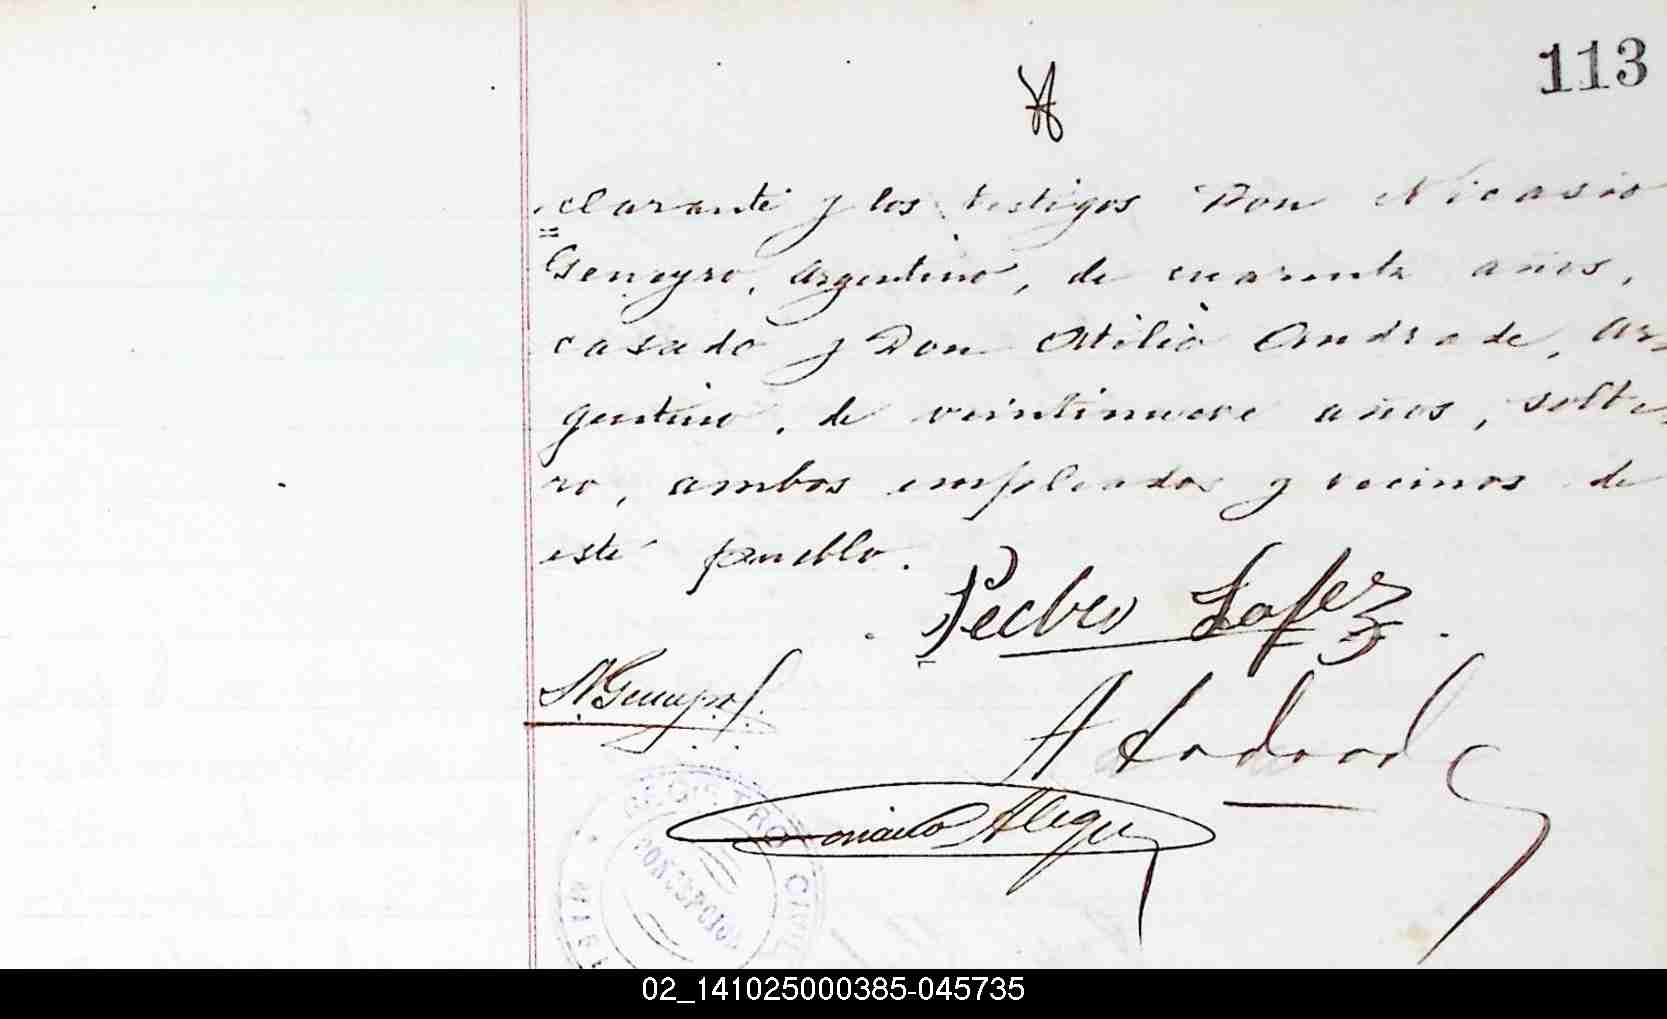 113
clarante y los testigos Don Nicasio
Geneyro, argentino, de cuarenta años,
casado y Don Atilio Andrade, ar
gentino, de veintinueve años, solte
ro, ambos empleados y vecinos de
este pueblo.
Pedro Lopez
A Andrade
REGISTRO CIVIL
CONCEPCION
MISI
02_141025000385-045735